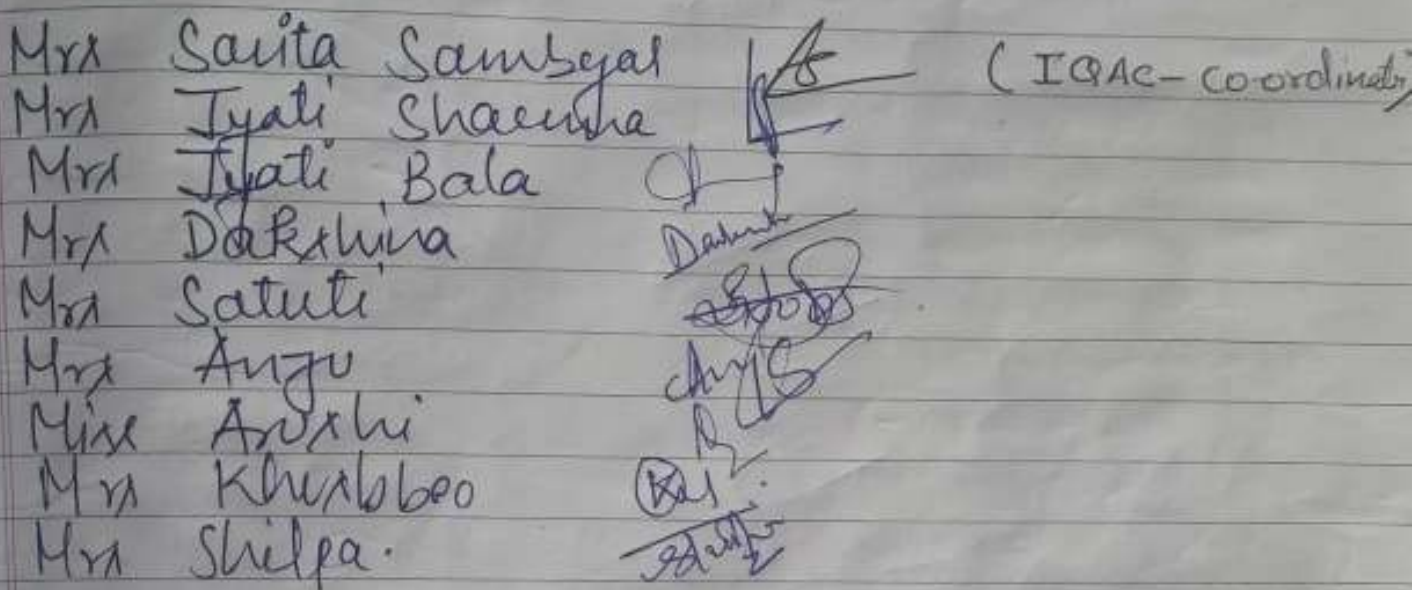 Mrs Sarita Sambyal (IQAC-Co-ordinator)
Mrs Jyoti Sharma
Mrs Jyoti Bala
Mrs Dakshina
Mrs Satuti
Mrs Anju
Miss Arushi
Mrs Khushboo
Mrs Shilpa.